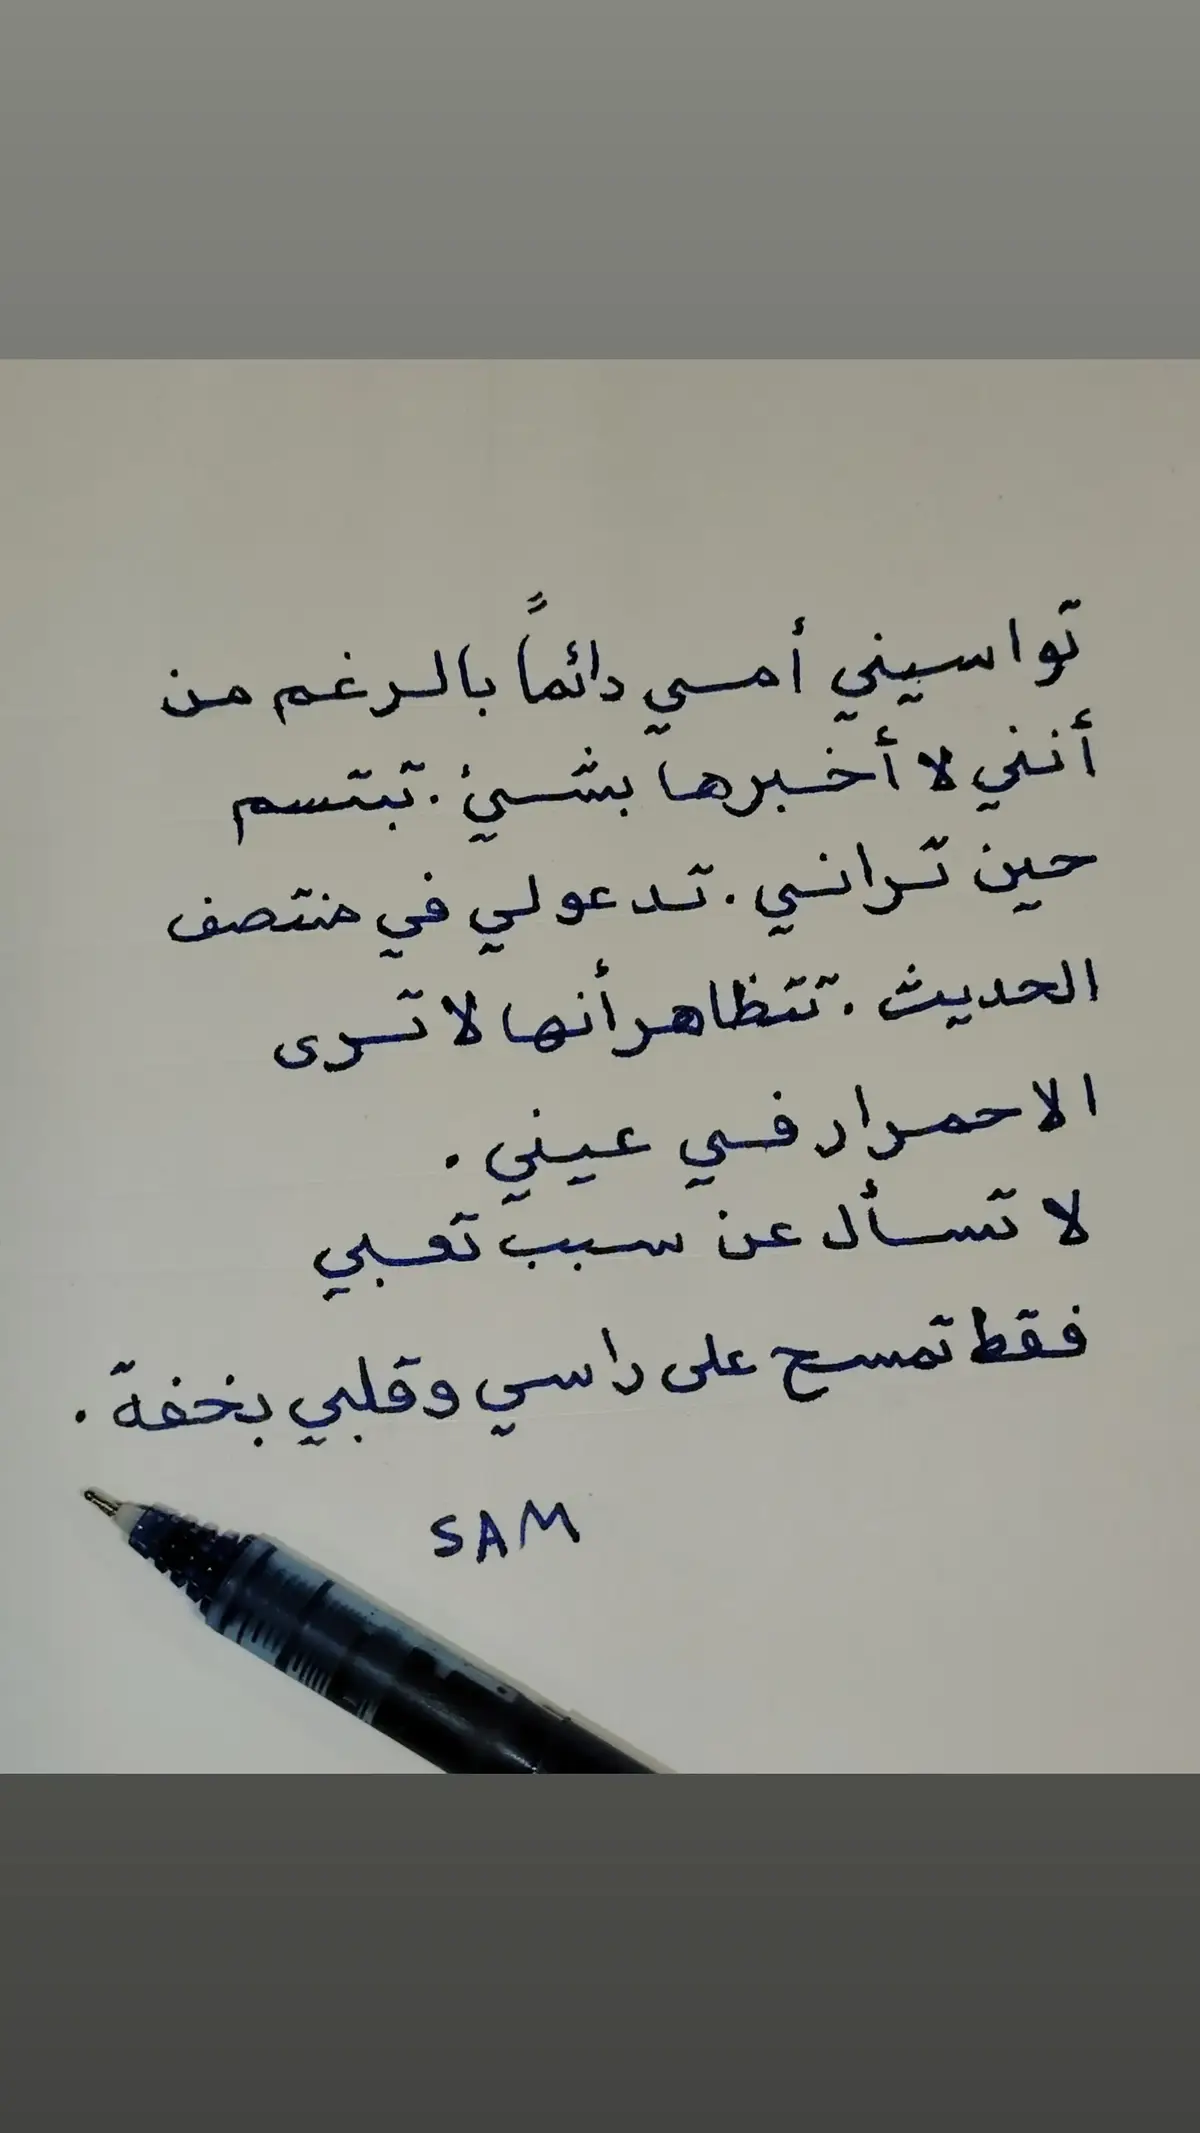 تواسيني أمي دائماً بالرغم من
أنني لا أخبرها بشيئ . تبتسم
حين تراني . تدعو لي في منتصف
الحديث . تتظاهر أنها لا ترى
الاحمرار في عيني .
لا تسأل عن سبب تعبي
فقط تمسح على راسي وقلبي بخفة .
SAM